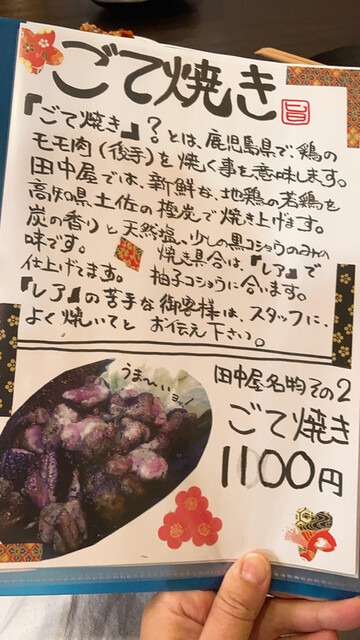 ごて焼き
旨
『ごて焼き』?とは、鹿児島県で、鶏の
モモ肉(後手)を焼く事を意味します。
田中屋では、新鮮な、地鶏の若鶏を
高知県土佐の極炭で焼き上げます。
炭の香りと天然塩、少しの黒コショウのみの
味です。 焼き具合は、『レア』で
仕上げてます。 柚子コショウに合います。
『レア』の苦手な御客様は、スタッフに、
よく焼いてと お伝え下さい。
うま〜いヨッ!
田中屋名物その2
ごて焼き
1100円